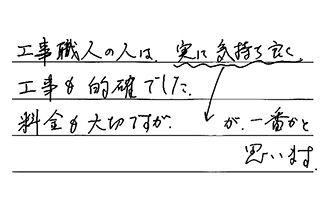 工事職人の人は、実に気持ち良く、
工事も的確でした。
料金も大切ですが、が、一番かと
思います。